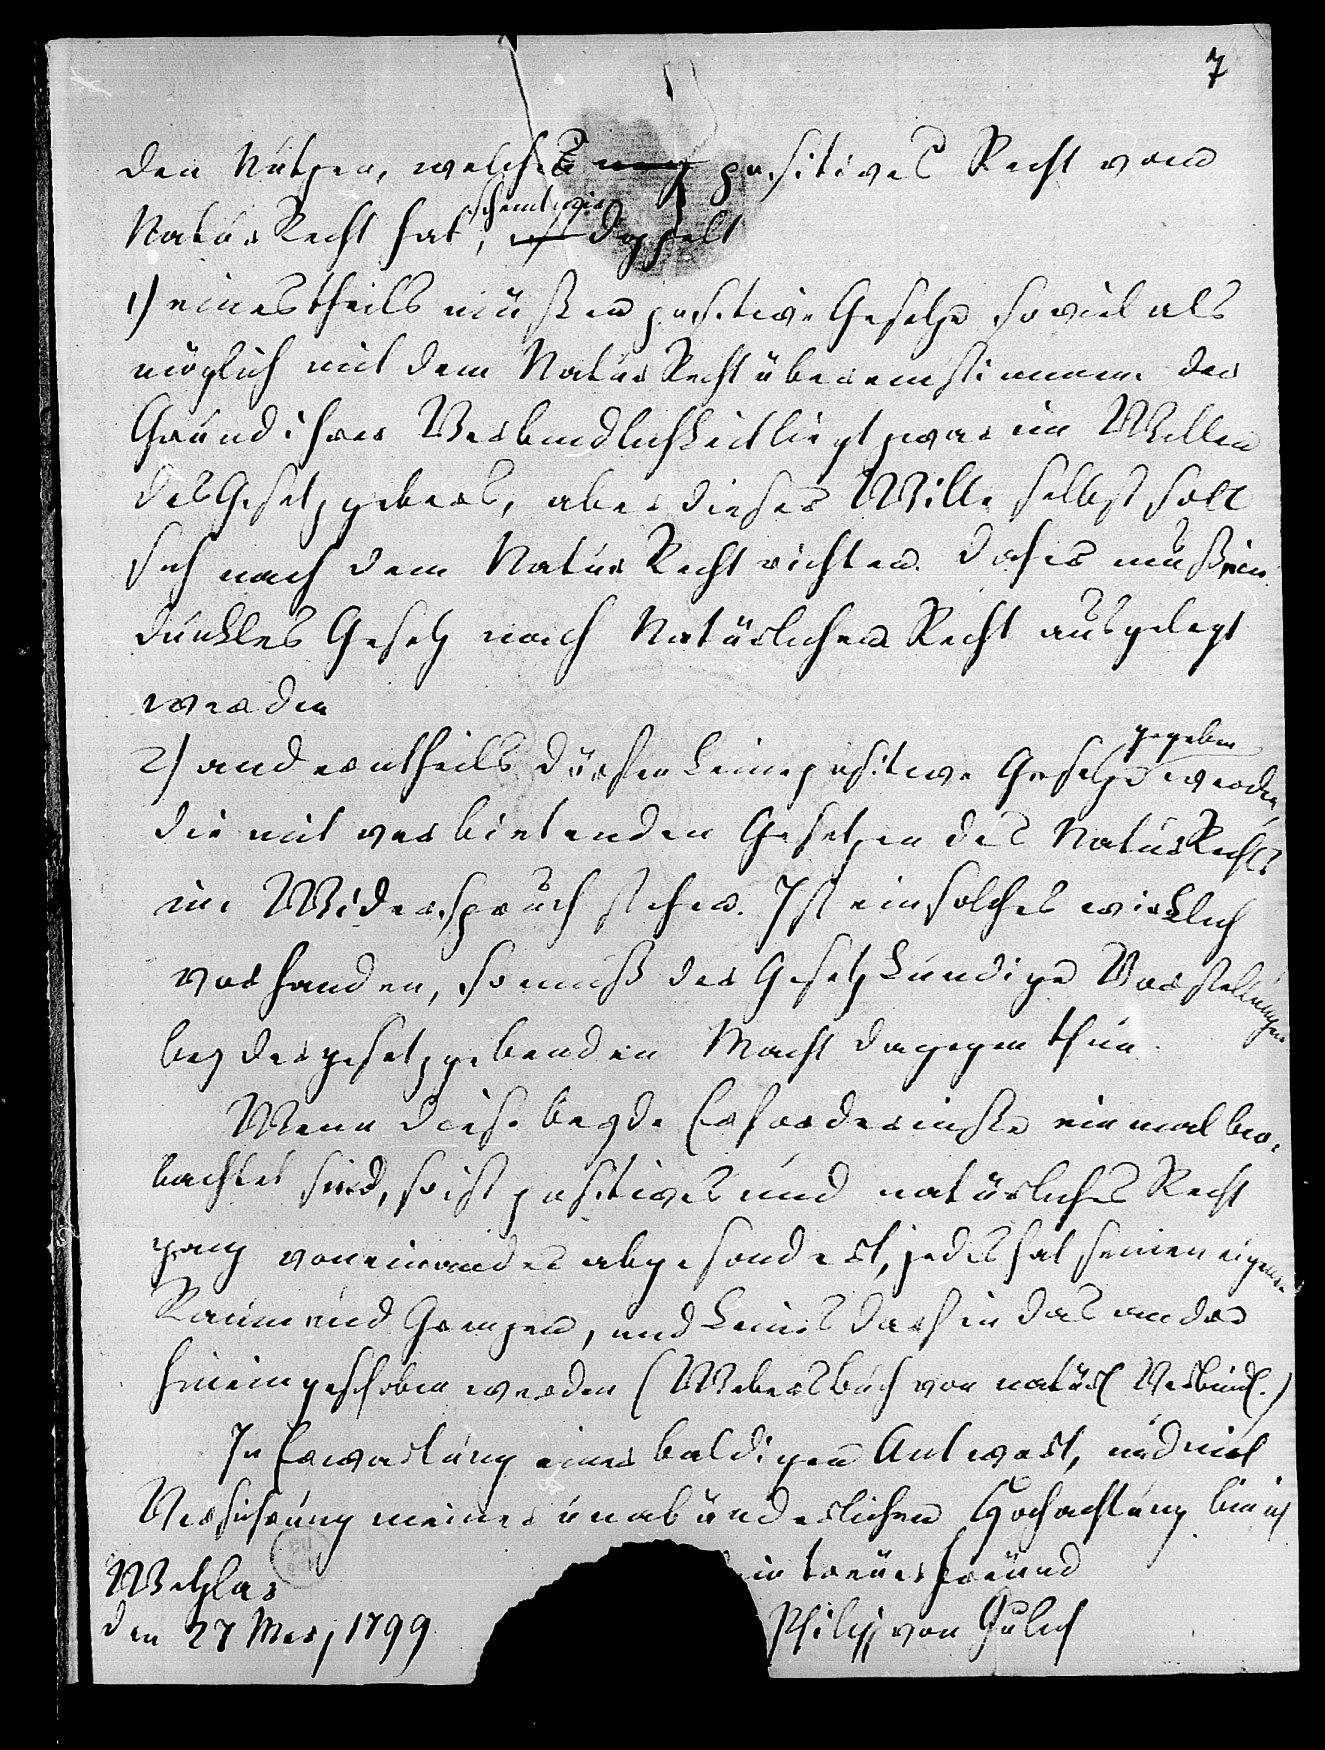 7
den Nutzen, welches positives Recht vom
scheint mir
Natur Recht hat, ist doppelt
1) eines theils müßen positive Gesetze soviel als
möglich mit dem Natur Recht übereinstimmen der
Grund ihrer Verbindlichkeit liegt zwar im Willen
des Gesetzgebers, aber dieser Wille selbst soll
sich nach dem Natur Recht richten. daher muß ein
dunkles Gesetz nach Natürlichem Recht ausgelegt
werden
gegeben
2) anderntheils dürfen keine positive Gesetze werden,
die mit verbietenden Gesetzen des NaturRechts
im Widerspruch stehen. Ist ein solches wirklich
vorhanden, so muß der Gesetzkundige Vorstellungen
bey der gesetzgebenden Macht dagegen thun.
Wenn diese beyde Erforderniße einmal beo-
bachtet sind, so ist positives und natürliches Recht
ganz voneinander abgesondert, jedes hat seinen eigenen
Raum und Grenzen, und keines darf in das andre
hineingeschoben werden (Webers buch von natürl Verbindl.)
In Erwartung einer baldigen Antwort, und mit
Versichrung meiner unabänderlichen Hochachtung bin ich
Wetzlar
treuer Freund
den 27 Merz 1799
Philipp von Gülich